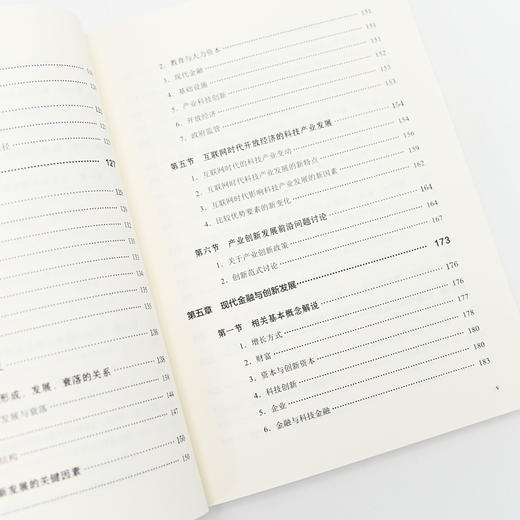 径
127
138
形成、发展、衰落的关系
138
发展与衰落
144
147
结构
150
新发展的关键因素
150
151
2. 教育与人力资本 151
3. 现代金融 151
4. 基础设施
5. 产业科技创新 152
6. 开放经济
7. 政府监管 153
第五节 互联网时代开放经济的科技产业发展 154
1. 互联网时代的科技产业变动 154
2. 互联网时代科技产业发展的新特点 156
3. 互联网时代影响科技产业发展的新因素 159
4. 比较优势要素的新变化 162
第六节 产业创新发展前沿问题讨论 164
1. 关于产业创新政策 164
2. 创新范式讨论 167
第五章 现代金融与创新发展 173
第一节 相关基本概念解说 176
1. 增长方式 176
2. 财富 177
3. 资本与创新资本 178
4. 科技创新 180
5. 企业 180
6. 金融与科技金融 183
v